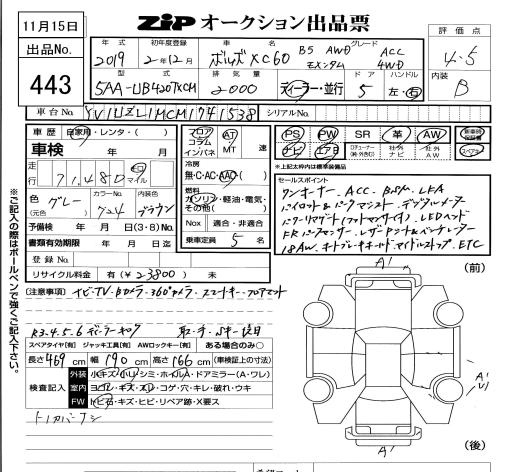 11月15日
ZIP オークション出品票
出品No.
443
評価点
4.5
内装
B
年式
2019
初年度登録
2年12月
車名
ボルボ XC60
グレード
B5 AWD
ACC
4WD
型式
5AA-UB420TXCM
排気量
2000
ディーラー・並行
ドア
5
ハンドル
左・右
車台No.
YV1UZL1MCM1741538
シリアルNo.
車歴 自家用・レンタ・( )
車検 年 月
走行 71,480 キロ マイル
色 グレー (元色)
カラーNo. 724
内装色 ブラウン
予備検 年 月 日 (3・8) No.
書類有効期限 年 月 日迄
登録No.
リサイクル料金 有 (¥23800) 未
フロア
コラム
インパネ
AT
MT 速
冷房
無・C・AC・AAC
燃料
ガソリン・軽油・電気・その他( )
Nox 適合・非適合
乗車定員 5 名
PS PW SR 革 AW
ナビ エアB
社外ナビ 社外AW
新車時保証書
*上記太枠内は標準装備品
セールスポイント
ワンオーナー ACC BカメラLKA
パイロット&パークアシスト デジタルメーター
パワーリヤゲート(フットセンサ付) LEDヘッド
FRパークセンサー レザーシート&ベンチレーター
18AW キーレスキー アイドルストップ ETC
[注意事項] ナビ・TV・Bカメラ・360°カメラ・スマートキー・フロアマット
R3.4.5.6 ディーラー
スペアタイヤ[有] ジャッキ工具[有] AWロックキー[有] ある場合のみ〇
長さ469cm 幅190cm 高さ166cm (車検証上の寸法)
検査記入
外装 小キズ・小凹・シミ・ホイルA・ドアミラー(A・ワレ)
室内 ヨゴレ・キズ・スレ・コゲ・穴・キレ・破れ・ウキ
FW トビ石・キズ・ヒビ・リペア跡・X要ス
トノカバーナシ
※ご記入の際はボールペンで強くご記入下さい。
(前)
A1
A1
(後)
A1